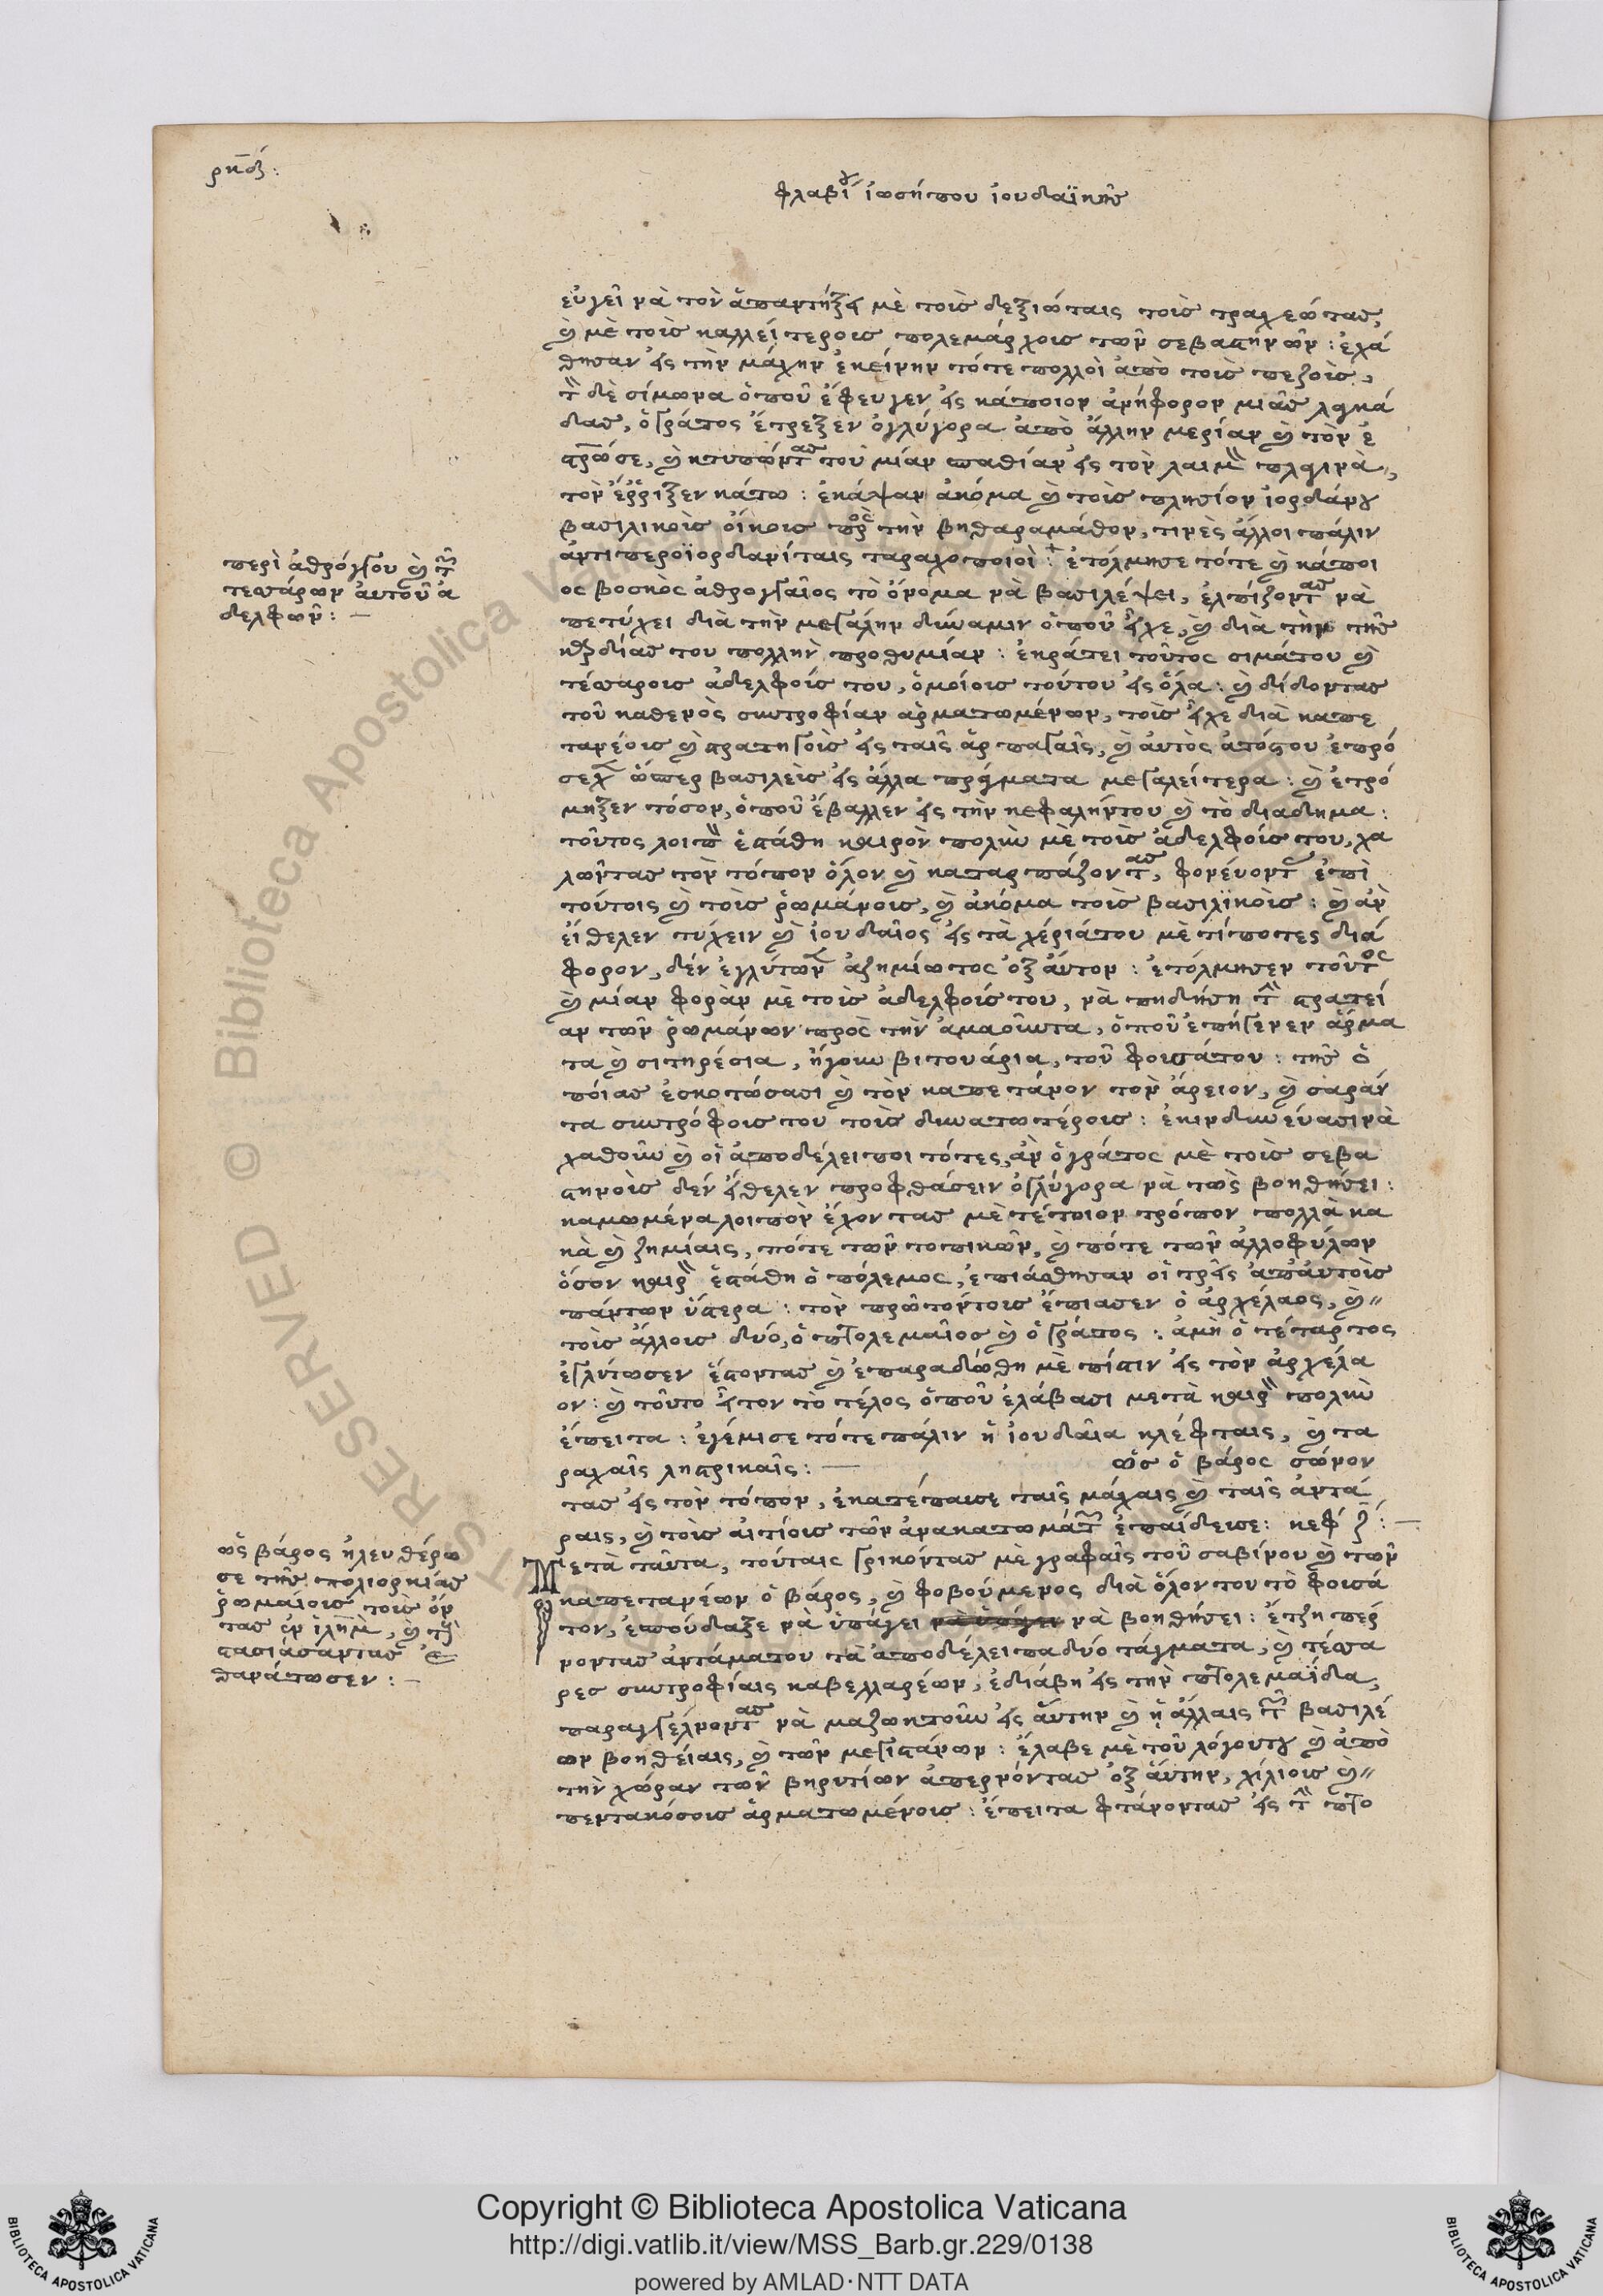 ρκδ:
φλαβίου ἰωσήπου ἰουδαϊκῆς
εὐγεῖ νὰ τὸν ἀπαντήξῃ μὲ τοὶς δεξιώταις τοὶς τραχεώτας,
καὶ μὲ τοὶς καλλείτεροις πολεμάρχοις τῶν σεβαστηνῶν: ἐχά
θησαν εἰς τὴν μάχην ἐκείνην τότε πολλοὶ ἀπὸ τοὶς πεζοὶς,
τὸν δὲ σίμωνα ὁποῦ ἔφευγεν εἰς κάποιον ἀνήφορον μιᾶς λαγκά
δας, ὁ γράτος ἔτρεξεν ὀγλύγορα ἀπὸ ἄλλην μερίαν καὶ τὸν ἐ
στρῶσε, καὶ κτυπῶντας του μίαν σπαθίαν εἰς τὸν λαιμὸν πλαγινὰ,
τὸν ἔρριξεν κάτω: ἐκάψαν ἀκόμα καὶ τοὶς πλησίον ἰορδάνου
βασιλικοὶς οἴκοις πρὸς τὴν βηθαραμάθον, τινὲς ἄλλοι πάλιν
ἀντιπεροϊορδανίταις ταραχοποιοὶ: ἐτόλμησε τότε καὶ κάποι
ος βοσκὸς ἀθρογγαῖος τὸ ὄνομα νὰ βασιλέψει, ἐλπίζοντας νὰ
πετύχει διὰ τὴν μεγάλην δύναμιν ὁποῦ εἶχε, καὶ διὰ τὴν τῆς
καρδίας του πολλὴν προθυμίαν: ἐκράτει τοῦτος σιμάτου καὶ
τέσσαροις ἀδελφοίς του, ὁμοίοις τούτου εἰς ὅλα: καὶ δίδοντας
τοῦ καθενὸς συντροφίαν ἀρματωμένων, τοὶς εἶχε διὰ καπε
τανέοις καὶ στρατηγοὶς εἰς ταῖς ἁρπαγαῖς, καὶ ἀυτὸς ἀπόςου ἐπρό
σεχεν ὥσπερ βασιλεὶς εἰς ἄλλα πράγματα μεγαλείτερα: καὶ ἐτρό
μηξεν τόσον, ὁποῦ ἔβαλλεν εἰς τὴν κεφαλήντου καὶ τὸ διάδημα:
τοῦτος λοιπὸν ἐστάθη καιρὸν πολὺν μὲ τοὶς ἀδελφοίς του, χα
λῶντας τὸν τόπον ὅλον καὶ καταρπάζοντας, φονέυοντας ἐπὶ
τούτοις καὶ τοὶς ῥωμάνοις, καὶ ἀκόμα τοὶς βασιλϊκοὶς: καὶ ἀν
εἴθελεν τύχειν καὶ ἰουδαῖος εἰς τὰ χέριάτου μὲ τίποτες διά
φορον, δὲν ἐγλύτων ἀζημίωτος ὀξάυτον: ἐτόλμησεν τοῦτος
καὶ μίαν φορὰν μὲ τοὶς ἀδελφοίς του, νὰ πηδήση τὴν στρατεί
αν τῶν ῥωμάνων πρὸς τὴν ἀμαοῦντα, ὁποῦ ἐπήγενεν ἄρμα
τα καὶ σιτηρέσια, ἤγουν βιτουάρια, τοῦ φουσάτου: τῆς ὁ
ποίας ἐσκοτώσασι καὶ τὸν καπετάνον τὸν ἄρειον, καὶ σαράν
τα συντρόφοις του τοὶς δυνατωτέροις: ἐκινδυνεύασι νὰ
χαθοῦν καὶ οἱ ἀποδέλειποι τότες, ἀν ὁ γράτος μὲ τοὶς σεβα
στηνοὶς δέν εἴθελεν προφθάσειν ὀγλύγορα νὰ τῶς βοηθήσει:
καμωμένα λοιπὸν ἔχοντας μὲ τέτοιον τρόπον πολλὰ κα
κὰ καὶ ζημίαις, πότε τῶν τοπικῶν, καὶ πότε τῶν ἀλλοφύλων
ὅσον καιρὸν ἐστάθη ὁ πόλεμος, ἐπιάσθησαν οἱ τρεῖς ἀπ᾽ἀυτοὶς
πάντων ὕστερα: τὸν πρῶτοντοις ἔπιασεν ὁ ἀρχέλαος, καὶ
τοὶς ἄλλοις δυό, ὁ πτολεμαῖος καὶ ὁ γράτος: ἀμὴ ὁ τέταρτος
ἐγλύτωσεν ἔστοντας καὶ ἐπαραδώθη μὲ πίστιν εἰς τὸν ἀρχέλα
ον: καὶ τοῦτο εἶτον τὸ τέλος ὁποῦ ἐλάβασι μετὰ καιρὸν πολὺν
ἔπειτα: ἐγέμισε τότε πάλιν ἡ ἰουδαῖα κλέφταις, καὶ τα
ραχαῖς ληστρικαῖς: — ὡς ὁ βάρος σώνον
τας εἰς τὸν τόπον, ἐκατέπαυσε ταῖς μάχαις καὶ ταῖς ἀντά
ραις, καὶ τοὶς αἰτίοις τῶν ἀνακατωμάτων ἐπαίδευσε: κεφ ζ: —
Μετὰ ταῦτα, τούταις γρικόντας μὲ γραφαῖς τοῦ σαβίνου καὶ τῶν
καπετανέων ὁ βάρος, καὶ φοβούμενος διὰ ὅλον του τὸ φουσά
τον, ἐσπούδαξε νὰ ὑπάγει νὰ ὑπάγει νὰ βοηθήσει: ἔτζη περ
νοντας ἀντάματου τὰ ἀποδέλειπα δυό τάγματα, καὶ τέσσα
ρες συντροφίαις καβελλαρέων, ἐδιάβη εἰς τὴν πτολεμαΐδα,
παραγγέλνοντας νὰ μαζωκτοῦν εἰς ἄυτην καὶ ᾑ ἄλλαις τῶν βασιλέ
ων βοηθείαις, καὶ τῶν μεγιστάνων: ἔλαβε μὲ τοῦ λόγουτου καὶ ἀπὸ
τὴν χώραν τῶν βηρυτίων ἀπερνόντας ὀξάυτην, χίλιοις καὶ
πεντακόσοις ἀρματωμένοις: ἔπειτα φτάνοντας εἰς τὴν πτο
περὶ ἀθρόγγου καὶ τῶν
τεσσάρων ἀυτοῦ ἀ
δελφῶν: —
ὡς βάρος ἠλευθέρω
σε τῆς πολιορκίας
ῥωμαίοις τοὶς ὄν
τας ἐν ἱλημ, καὶ τοὺς
στασιάσαντας ἐ
θανάτωσεν: —
Copyright © Biblioteca Apostolica Vaticana
http://digi.vatlib.it/view/MSS_Barb.gr.229/0138
powered by AMLAD·NTT DATA
BIBLIOTECA APOSTOLICA VATICANA
BIBLIOTECA APOSTOLICA VATICANA